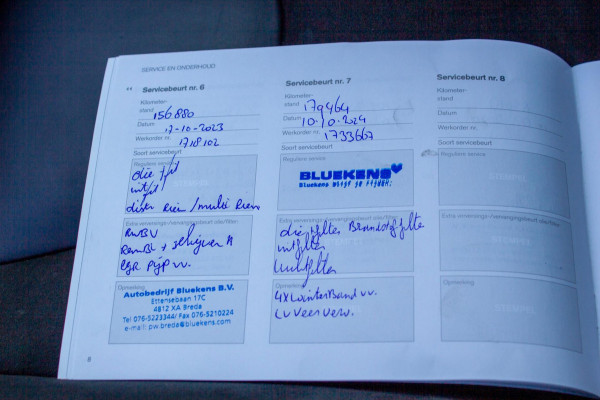 SERVICE EN ONDERHOUD
Servicebeurt nr. 6
Kilometer-
stand 156880
Datum 17-10-2023
Werkorder nr. 1718102
Soort servicebeurt
Reguliere service
Extra vervangings-/vervangingsbeurt olie/filter
RemBl + schijven A
EGR Pijp vv.
Autobedrijf Bluekens B.V.
Ettensebaan 17C
4812 XA Breda
Tel 076-5223344/ Fax 076-5210224
e-mail: pw.breda@bluekens.com
8
Servicebeurt nr. 7
Kilometer-
stand 179464
Datum 10-10-2024
Werkorder nr. 1733667
Soort servicebeurt
Reguliere service
BLUEKENS
Bluekens blijf je rijden.
Extra vervangings-/vervangingsbeurt olie/filter
oliefilter Brandstoffilter
intfilter
luchtfilter
Opmerking
4x winterBand vv.
LV veer verv.
Servicebeurt nr. 8
Kilometer-
stand
Datum
Werkorder nr.
Soort servicebeurt
Reguliere service
Extra vervangings-/vervangingsbeurt olie/filter
Opmerking